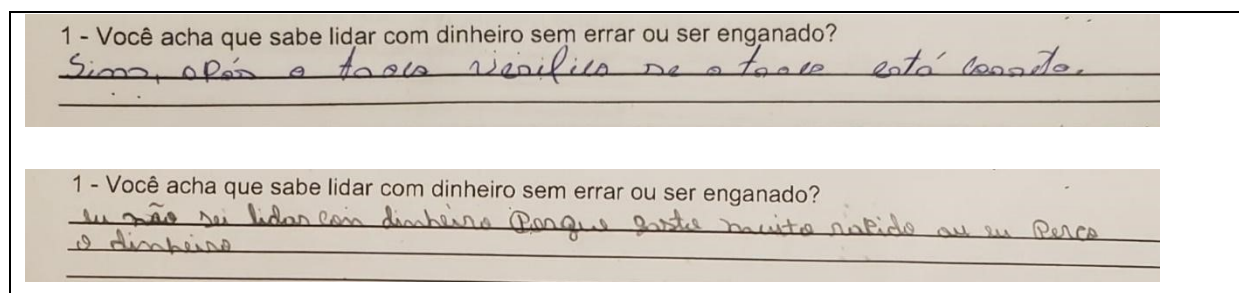 1 - Você acha que sabe lidar com dinheiro sem errar ou ser enganado?
Sim, após o troco verifico se o troco está correto.
1 - Você acha que sabe lidar com dinheiro sem errar ou ser enganado?
eu não sei lidar con dinheiro Porque gasto muito rápido ou eu Perco
o dinheiro